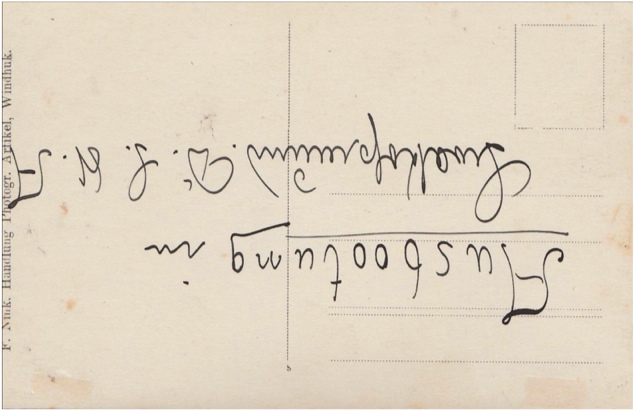 Ausbootung in
Swakopmund. D. S. W. A
F. Nink. Handlung Photogr. Artikel, Windhuk.